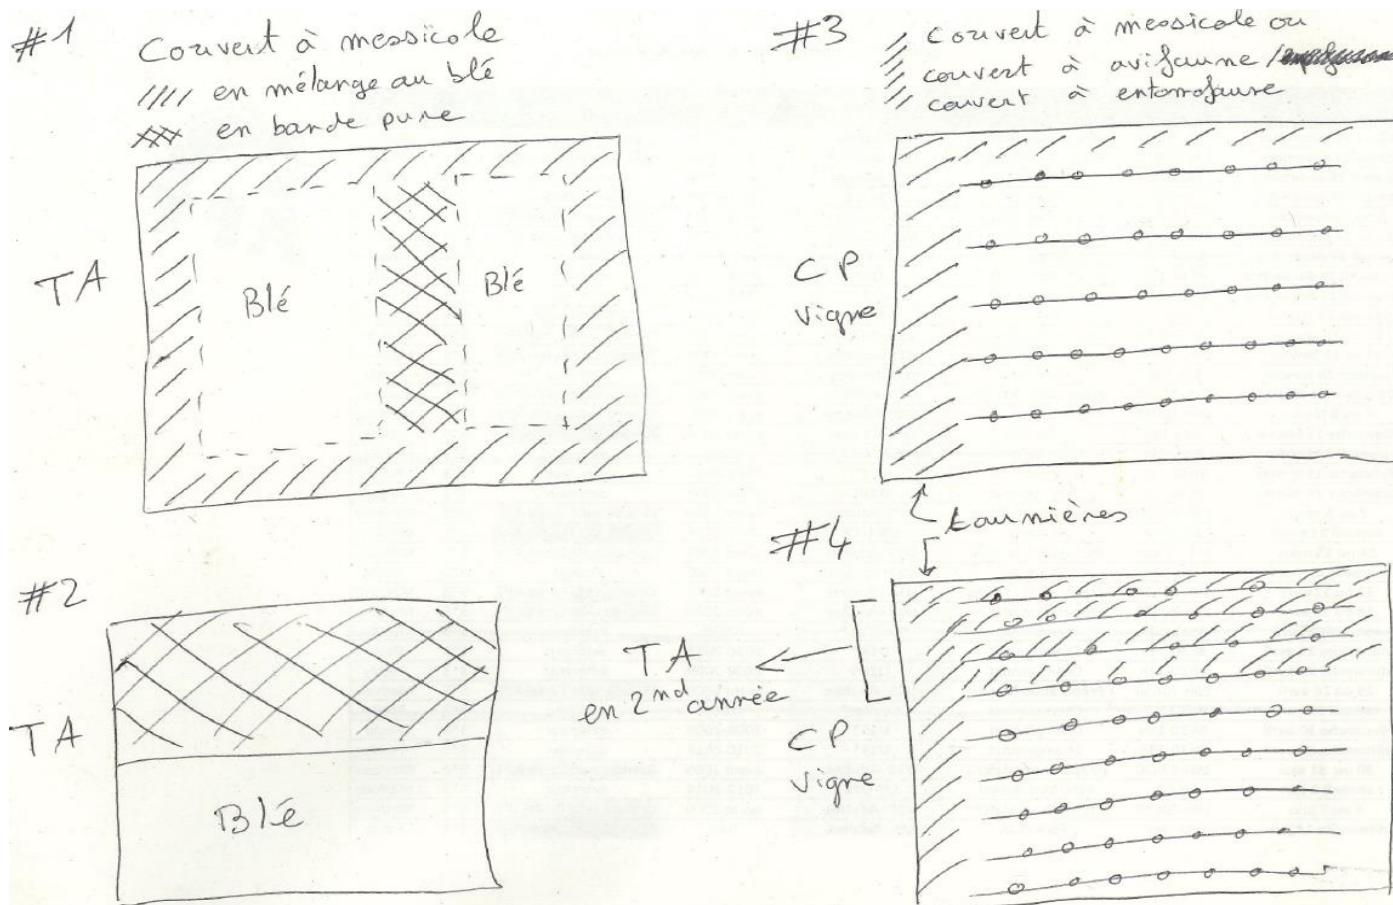 #1
Couvert à messicole
//// en mélange au blé
XXX en bande pure
TA
Blé
Blé
#2
TA
Blé
#3
couvert à messicole ou
couvert à avifaune /
couvert à entomofaune
CP
vigne
tournières
#4
TA
en 2nd année
CP
vigne